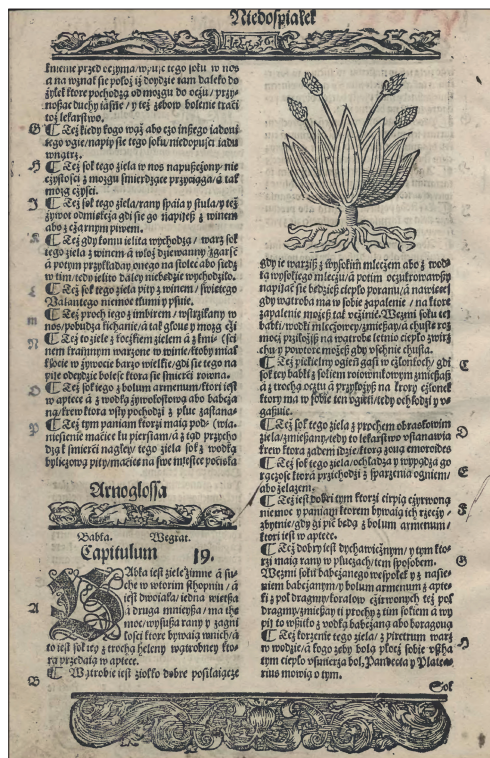 Niedospiałek
1536
kniemie przed oczyma/wpuść tego soku w nos
a na wznak sie położ iż doydzie tam daleko do
żyłek ktore pochodzą od mozgu do oczu/przy-
nosząc duchy iasne/y też zębow bolenie traci
toż lekarstwo.
G ¶ Też kiedy kogo wąż abo czo inszego iadoui
tego vgie/napiy sie tego soku/niedopuści iadu
wnątrz.
H ¶ Też sok tego ziela w nos napuszczony nie
czystości z mozgu smierdzące przyciąga/á tak
mozg czyści.
I ¶ Też sok tego ziela/rany spaia y stula/y też
żywot odmiękcża gdi sie go napiiesz z winem
abo z cżarnym piwem.
K ¶ Też gdy komu ielita wychodzą/warz sok
tego ziela z winem á włoż dziewanny zgarść
á potym przykładay onego na stolec abo siedź
w tim/tedy ielito daley niebędzie wychodziło.
L ¶ Też sok tego ziela pity z winem/swiętego
Walantego niemoc tłumi y psuie.
m ¶ Też proch iego z imbirem/wstrzikany w
nos/pobudza kichanie/á tak głowę y mozg cżi
N ¶ Też to ziele z koczkiem zielem á z kmi- (ści
nem trannym warzone w winie/ktoby miał
kłocie w żywocie barzo wielkie/gdi sie tego na
piie odeydzie boleść ktora sie śmierci rowna.
O ¶ Też sok tego z bolum armenum/ktori iest
w aptece á z wodką żywokostową abo babcżą
ną/krew ktora vsty pochodzi z pluc zastana-
P ¶ Też tym paniam ktorzi maią pod- (wia.
niesienie macice ku piersiam/á z tąd przycho
dzą k śmierci nagłey/tego ziela sok z wodką
bylicżową pity/macice na swe mieśce pociska
Arnoglossa
Babka. Wegrat.
Capitulum 19.
BAbka iest ziele zimne á su-
che w wtorim sthopniu/á
iest dwoiaka/iedna większa
A á druga mnieysza/ma the
moc/wysusza rany y zagni
łości ktore bywaią wnich/á
to iest sok iey z trochą heleny wątrobney kto-
ra przedaią w aptece.
B ¶ Wątrobie iest ziołko dobre posilaiącze
gdy ie warzisz z wysokim mleczem abo z wod-
ką wysokiego mleczu/á potim ocukrowawszy
napiiać sie będziesz ciepło poranu/á nawięcey
gdy wątroba ma w sobie zapalenie/na ktore
zapalenie możesz tak vcżinić. Wezmi soku tey
babki/wodki mlecżowey/zmieszay/á chustę roz
mocż przikłoż na wątrobę letnio ciepło zwirz
chu y powtorz możesz gdy vschnie chusta.
C ¶ Też piekielny ogień gasi w cżłonkoch/gdi
sok tey babki z sokiem roiownikowym zmieszasz
á z trochą ocztu á przyłożysz na ktory cżłonek
ktory ma w sobie ten ogień/tedy ochłodzi y v-
gasiuie.
D ¶ Też sok tego ziela z prochem obraskowim
ziela/zmieszany/tedy to lekarstwo vstanawia
krew ktora zadem idzie/ktorą zową emoroides
E ¶ Też sok tego ziela/ochładza y wypądza go
rącżość ktora przichodzi z sparzenia ogniem/
abo żelazem.
F ¶ Też iest dobri tym ktorzi cirpią cżyrwoną
niemoc y paniam ktorem bywaią ich rzecży/
zbytnie/gdy gi pić będą z bolum armenum/
ktori iest w aptece.
G ¶ Też dobry iest dychawicżnym/y tym kto-
rzi maią rany w pluczach/tem sposobem.
Wezmi soku babcżanego wespołek y z nasie-
niem babcżanym y bolum armenum z apte-
ki z poł dragmy/koralow cżirwonych też poł
dragmy/zmieszay ti prochy z tim sokiem á wy
piy to wszitko z wodką babcżaną abo boragouą
H ¶ Też korzenie tego ziela/z piretrum warz
w wodzie/á kogo zęby bolą płocż sobie vstha
tym ciepło vsmierza bol, Pandecta y Platea-
rius mowią o tym.
Sok